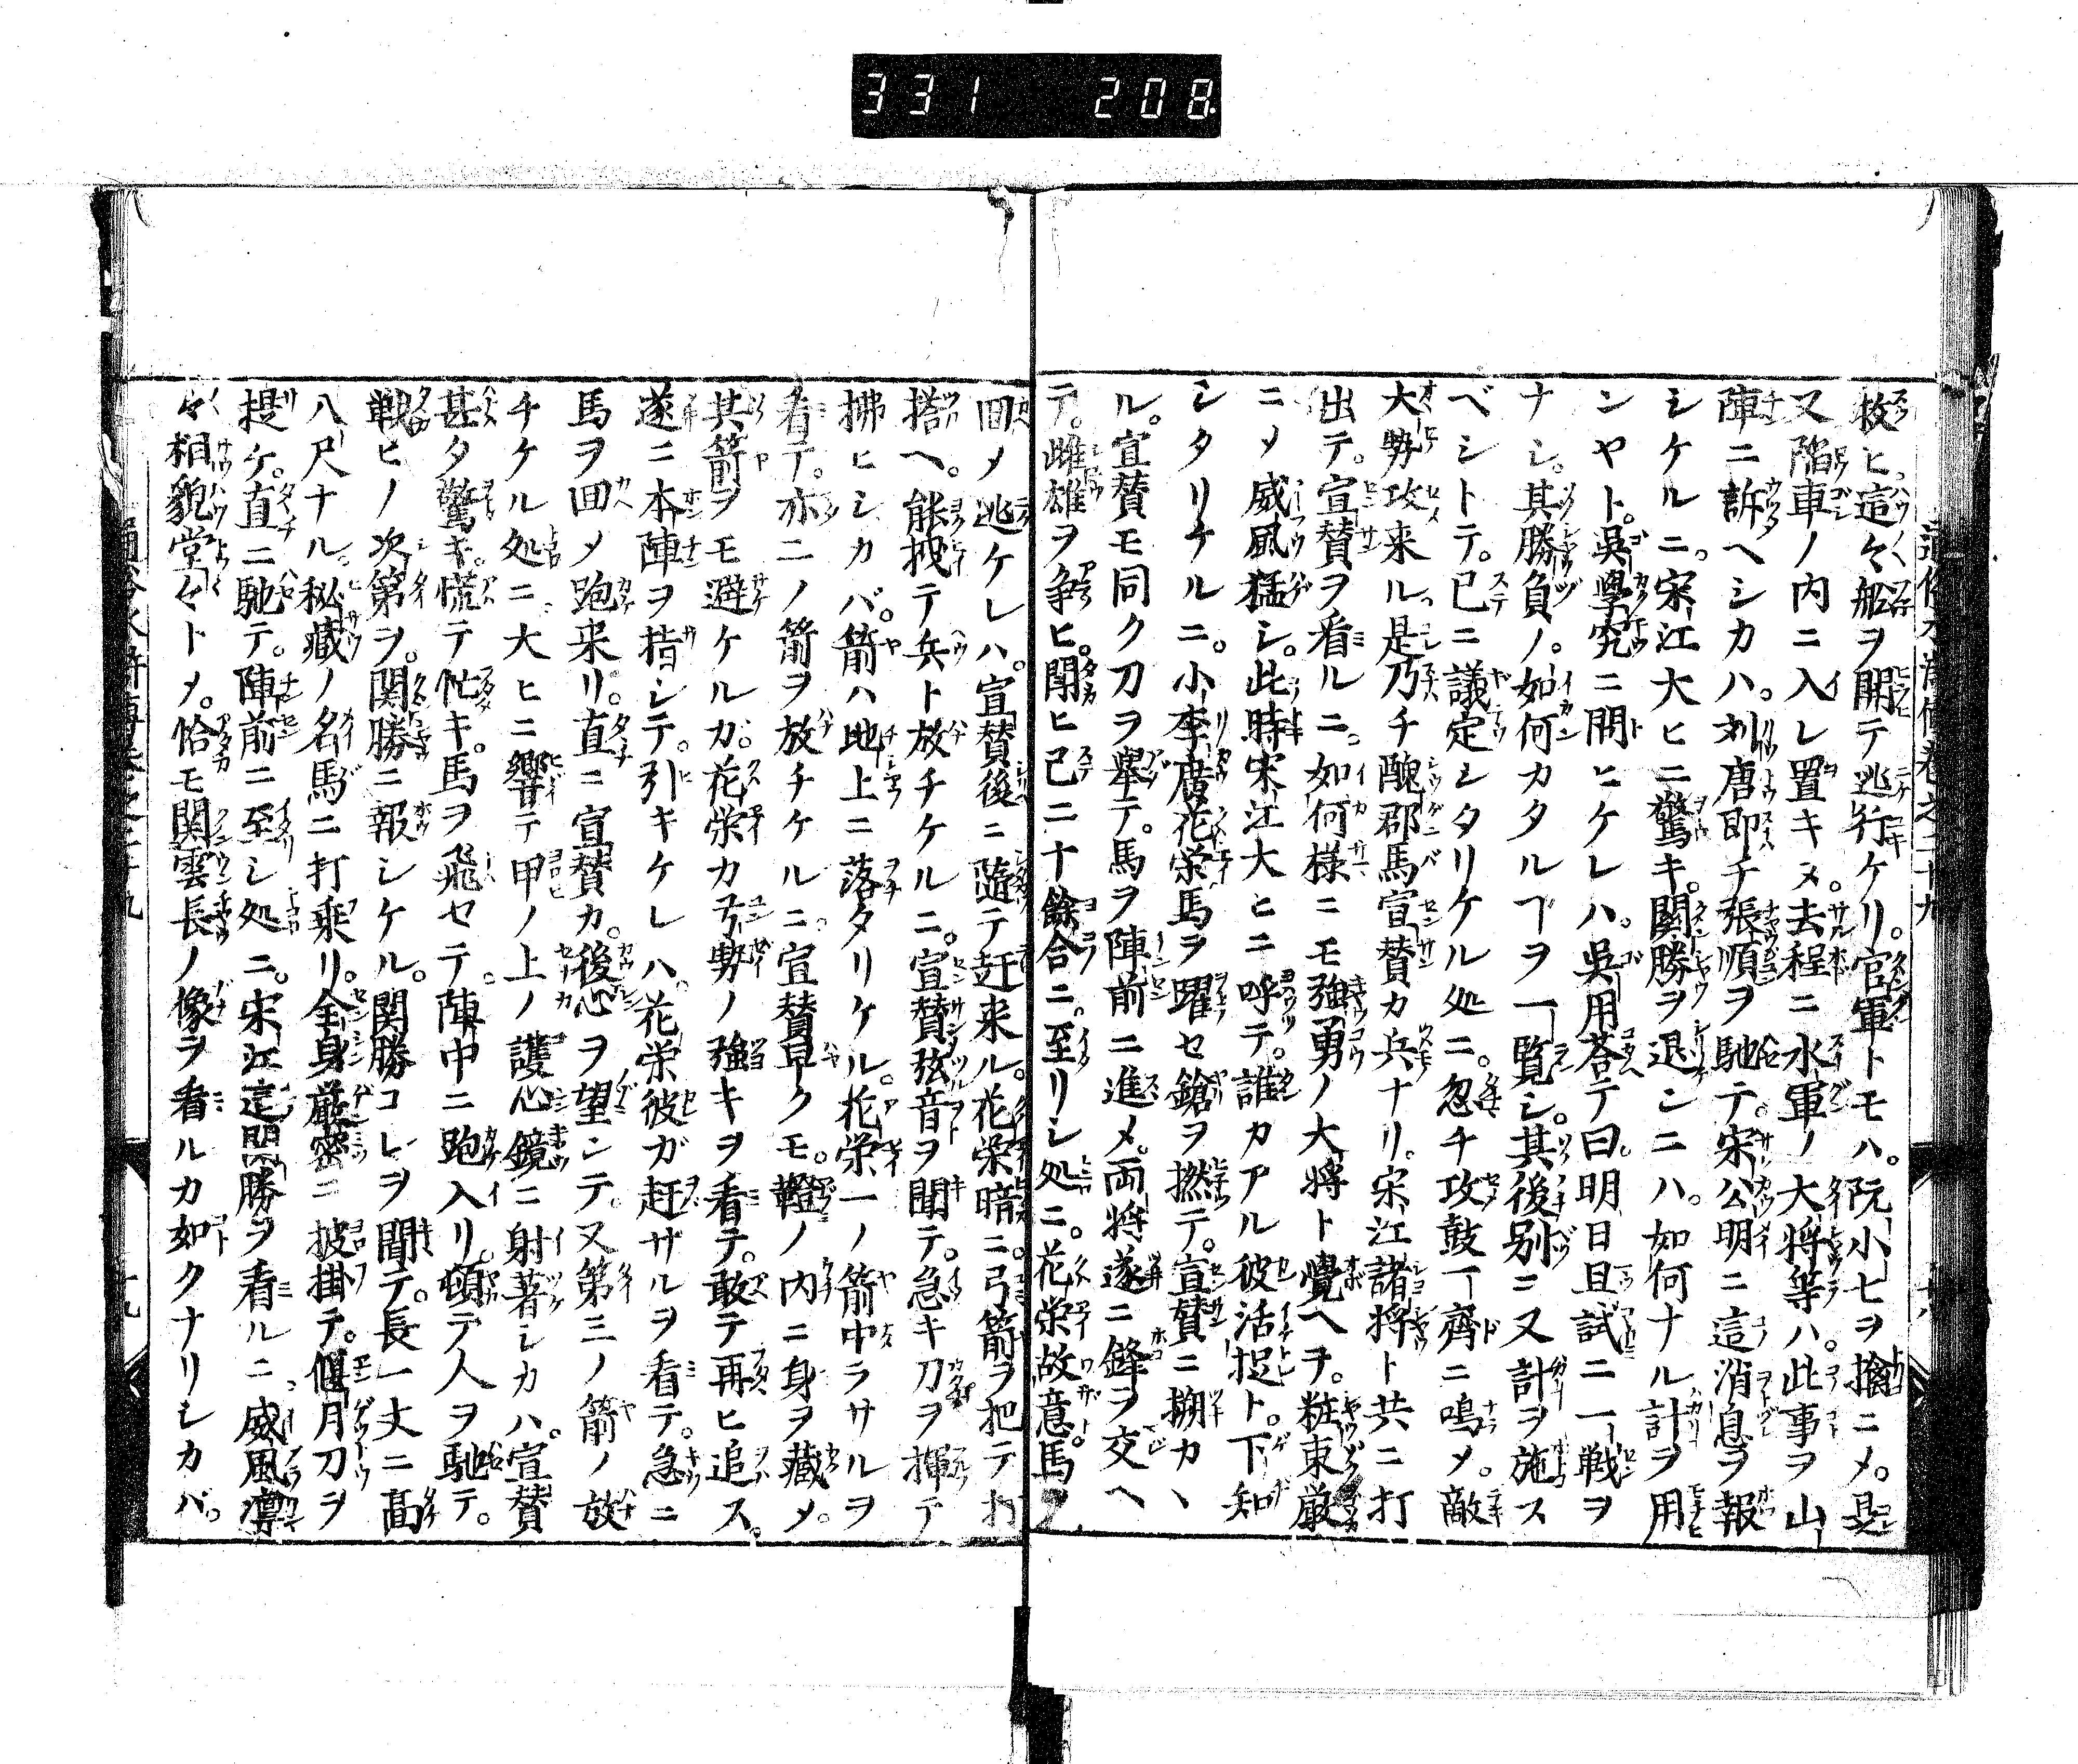 331 208
救ヒ。這々船ヲ開テ逃行ケリ。官軍トモハ。阮小七ヲ擒ニメ。是
又陥車ノ内ニ入レ置キヌ。去程ニ水軍ノ大将等ハ。此事ヲ山
陣ニ訴ヘシカハ。刘唐即チ張順ヲ馳テ。宋公明ニ這消息ヲ報
シケルニ。宋江大ヒニ驚キ。関勝ヲ退ンニハ。如何ナル計ヲ用
ンヤト。呉學究ニ問ヒケレハ。呉用荅テ曰。明日且試ニ一戦ヲ
ナシ。其勝負ノ。如何カタルヿヲ一覧シ。其後別ニ又計ヲ施ス
ベシトテ。已ニ議定シタリケル処ニ。忽チ攻鼓一齊ニ鳴メ。敵
大勢攻来ル是乃チ醜郡馬宣賛カ兵ナリ。宋江諸将ト共ニ打
出テ。宣賛ヲ看ルニ。如何様ニモ強勇ノ大将ト覺ヘヲ。粧束厳
ニメ威風猛シ。此時宋江大ヒニ呼テ。誰カアル彼活捉ト。下知
シタリケルニ。小李廣花栄馬ヲ躍セ鎗ヲ撚テ。宣賛ニ搠カヽ
ル。宣賛モ同ク刀ヲ舉テ。馬ヲ陣前ニ進メ。両将遂ニ鋒ヲ交ヘ
テ。雌雄ヲ争ヒ。閗ヒ已ニ十餘合ニ。至リシ処ニ。花栄故意馬ヲ
回メ逃ケレハ。宣賛後ニ隨テ赶来ル。花栄暗ニ。弓箭ヲ把テ打
搭ヘ。能拽テ兵ト放チケルニ。宣賛弦音ヲ聞テ。急キ刀ヲ揮テ
拂ヒシカバ。箭ハ地上ニ落タリケル。花栄一ノ箭中ラサルヲ
看テ。亦二ノ箭ヲ放チケルニ宣賛早クモ。鐙ノ内ニ身ヲ藏メ。
其箭ヲモ避ケルガ。花栄カ弓勢ノ強キヲ看テ。敢テ再ヒ追ス。
遂ニ本陣ヲ措シテ。引キケレハ。花栄彼ガ赶サルヲ看テ。急ニ
馬ヲ回メ跑来リ。直ニ宣賛カ。後心ヲ望ンテ。又第三ノ箭ノ放
チケル処ニ大ヒニ響テ甲ノ上ノ護心鏡ニ射著シカハ。宣賛
甚タ驚キ。慌テ忙キ。馬ヲ飛セテ。陣中ニ跑入リ。頓テ人ヲ馳テ。
戦ヒノ次第ヲ。関勝ニ報シケル。関勝コレヲ聞テ。長一丈ニ高
八尺ナル。秘藏ノ名馬ニ打乗リ。全身厳密ニ披掛テ。偃月刀ヲ
提ケ。直ニ馳テ。陣前ニ至シ処ニ。宋江這関勝ヲ看ルニ威風凛
々相貌堂々トメ。恰モ関雲長ノ像ヲ看ルカ如クナリシカバ。